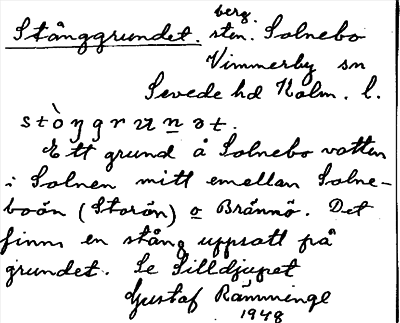 berg.
Stånggrundet. sten. Solnebo
Vimmerby sn
Sevede hd Kalm. l.
stòŋgrunət.
Ett grund å Solnebo vatten
i Solnen mitt emellan Solne-
boön (Storön) o Brännö. Det
finns en stång uppsatt på
grundet. Se Silldjupet
Gustaf Rämminge
1948